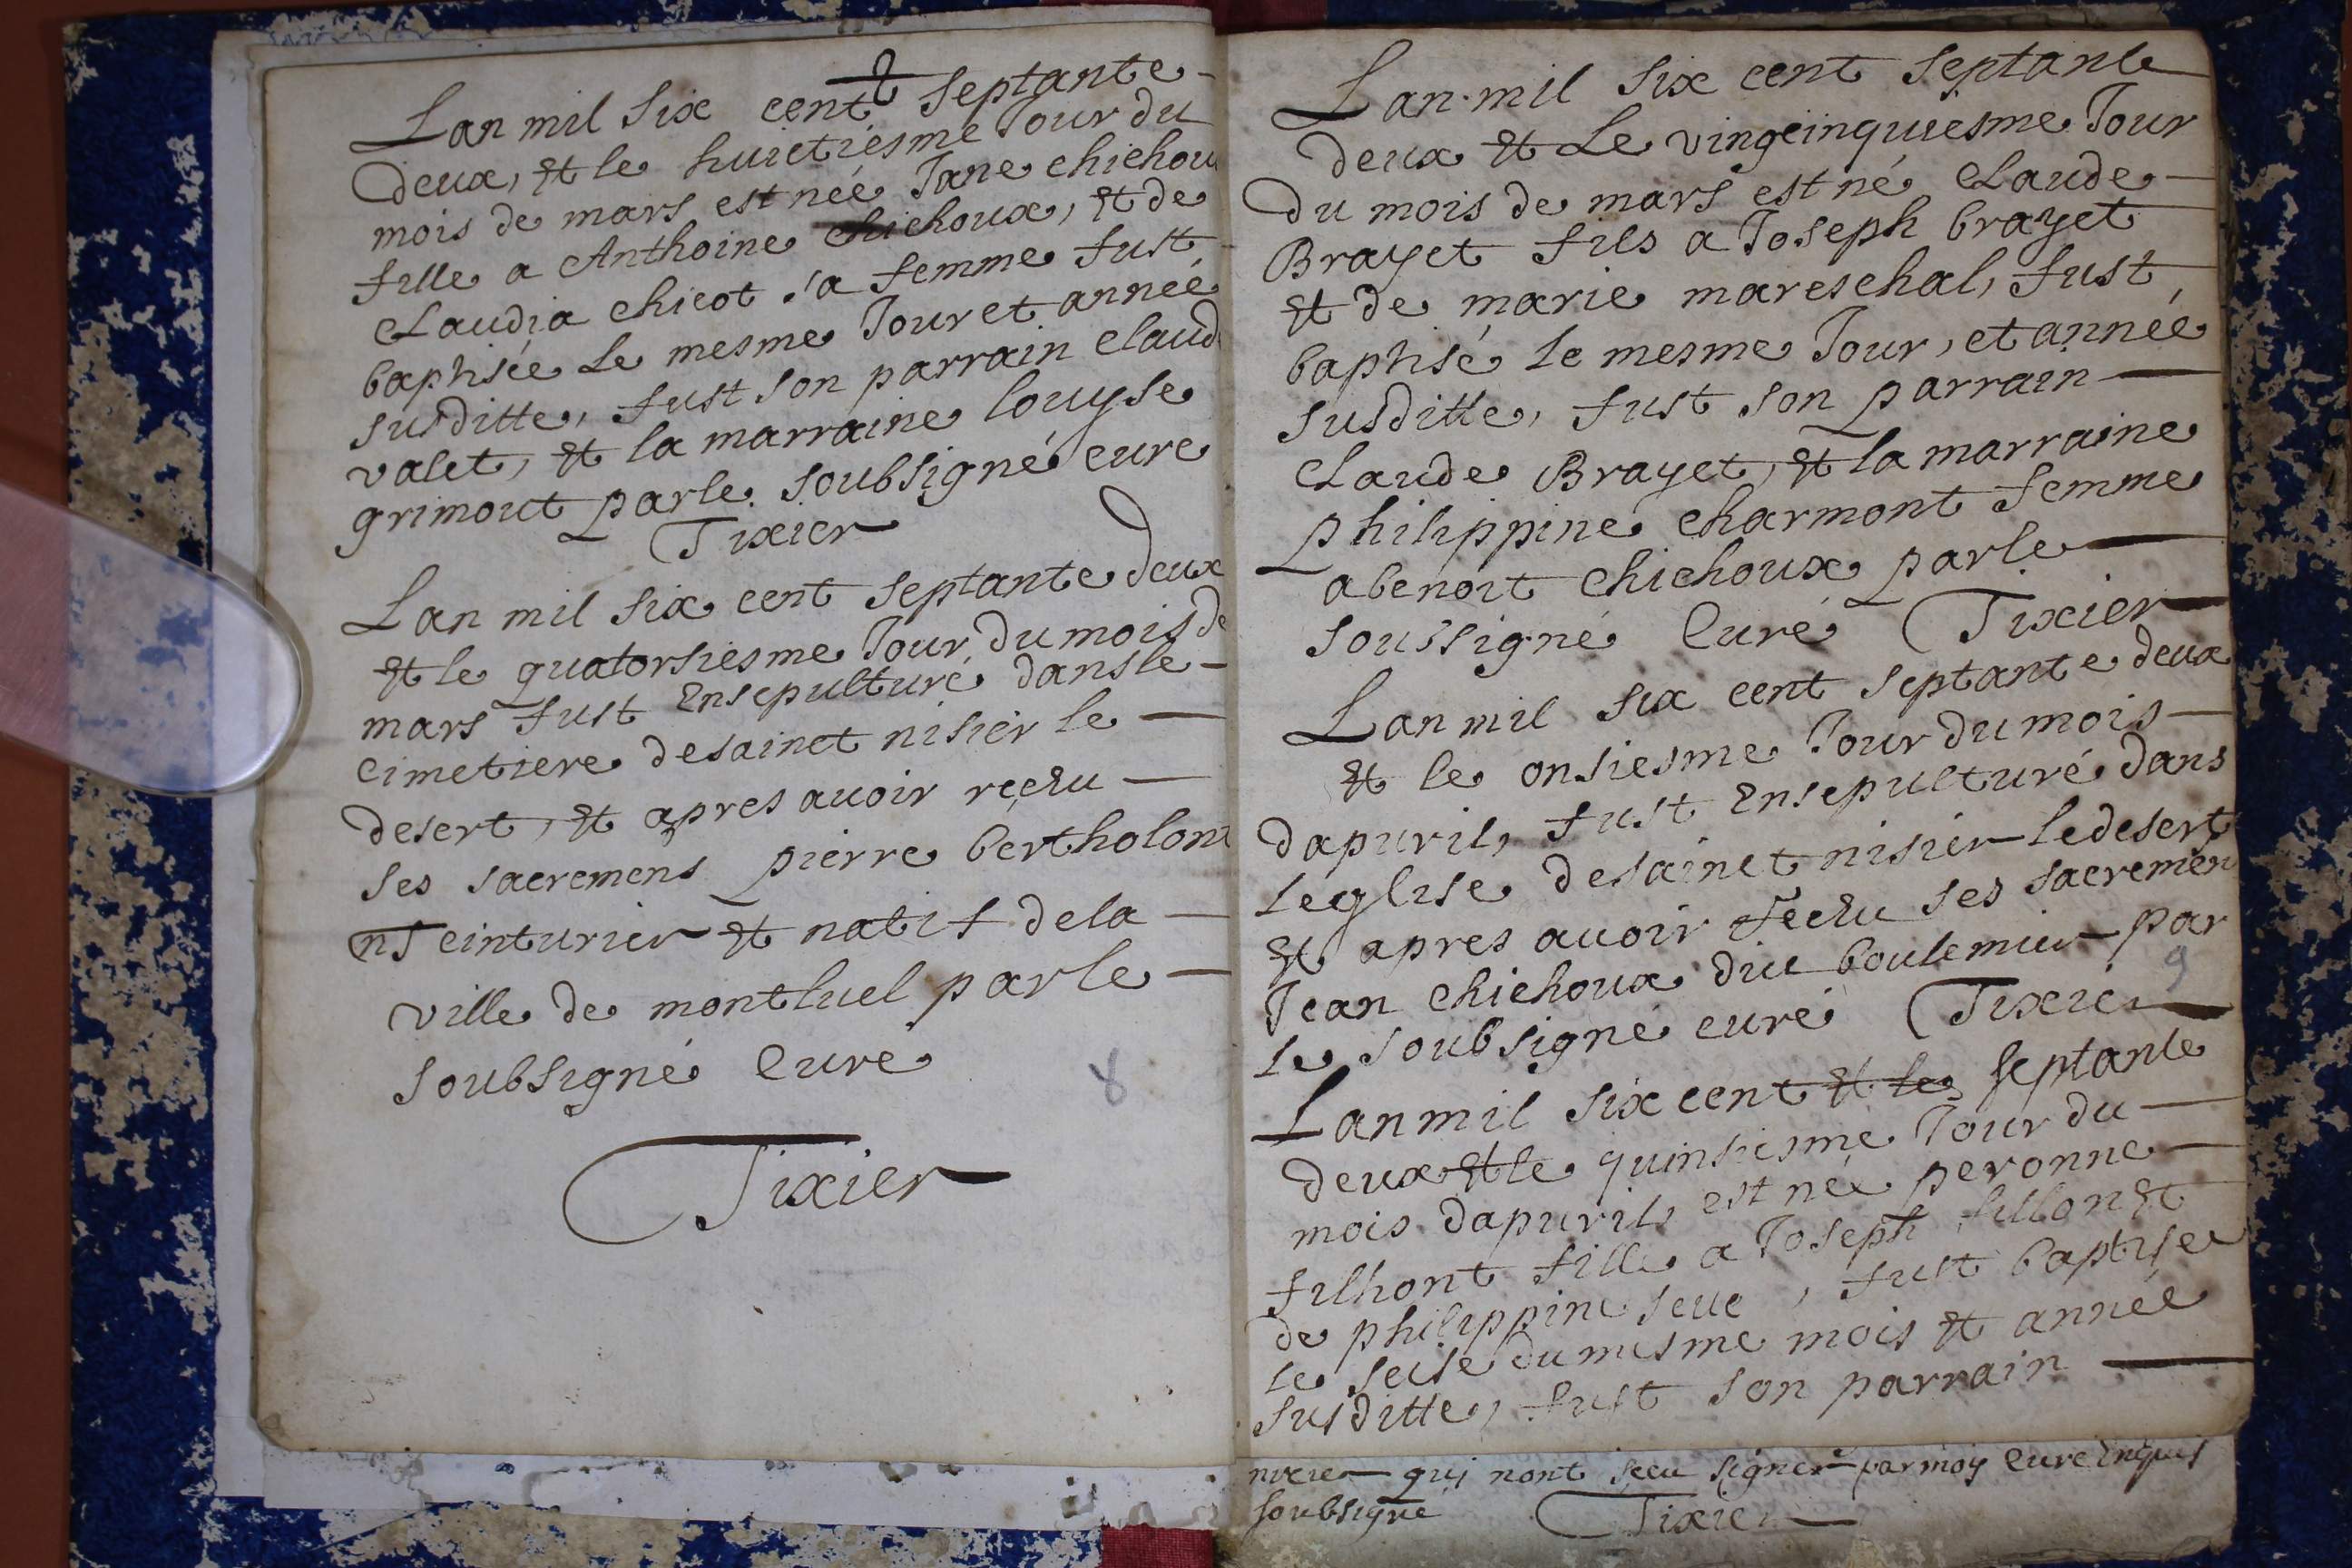 Lan mil six cent septante
deux, et le huictiesme Jour du
mois de mars est née Jane chichou
fille a Anthoine chichoux, et de
Claudia chicot sa femme fust
baptisée Le mesme Jour et année
susditte, fust son parrain claude
valet, et la marraine louyse
grimout parle soubsigné cure
Tixier
Lan mil six cent septante deux
et le quatorsiesme Jour du mois de
mars fust Ensepulturé dans le
cimetiere de sainct nisier le
desert, et apres auoir reçeu
ses sacremens pierre bertholon
einturier et natif de la
ville de montluel par le
soubsigné Cure
8
Tixier
Lan mil six cent septante
deux et Le vingcinquiesme Jour
du mois de mars est né Claude
Brayet fils a Joseph brayet
et de marie mareschal, fust
baptisé le mesme Jour, et année
susditte, fust son parrain
Claude Brayet, et la marraine
philippine charmont femme
a benoit chichoux par le
soussigné Curé Tixier
Lan mil six cent septante deux
et le onsiesme Jour du mois
dapuril, fust Ensepulturé dans
leglise de sainct nisier le desert
et apres auoir reçeu ses sacremen
Jean chichoux dit boulemier par
9
le soubsigné curé Tixier
Lan mil six cent et le septante
deux et le quinsiesme Jour du
mois dapuril, est née peronne
filhont fille a Joseph fillon et
de philippine seue, fust baptisee
le seise du mesme mois et année
susditte, fust son parrain
qui nont sceu signer par moy Cure
soubsigné Tixier